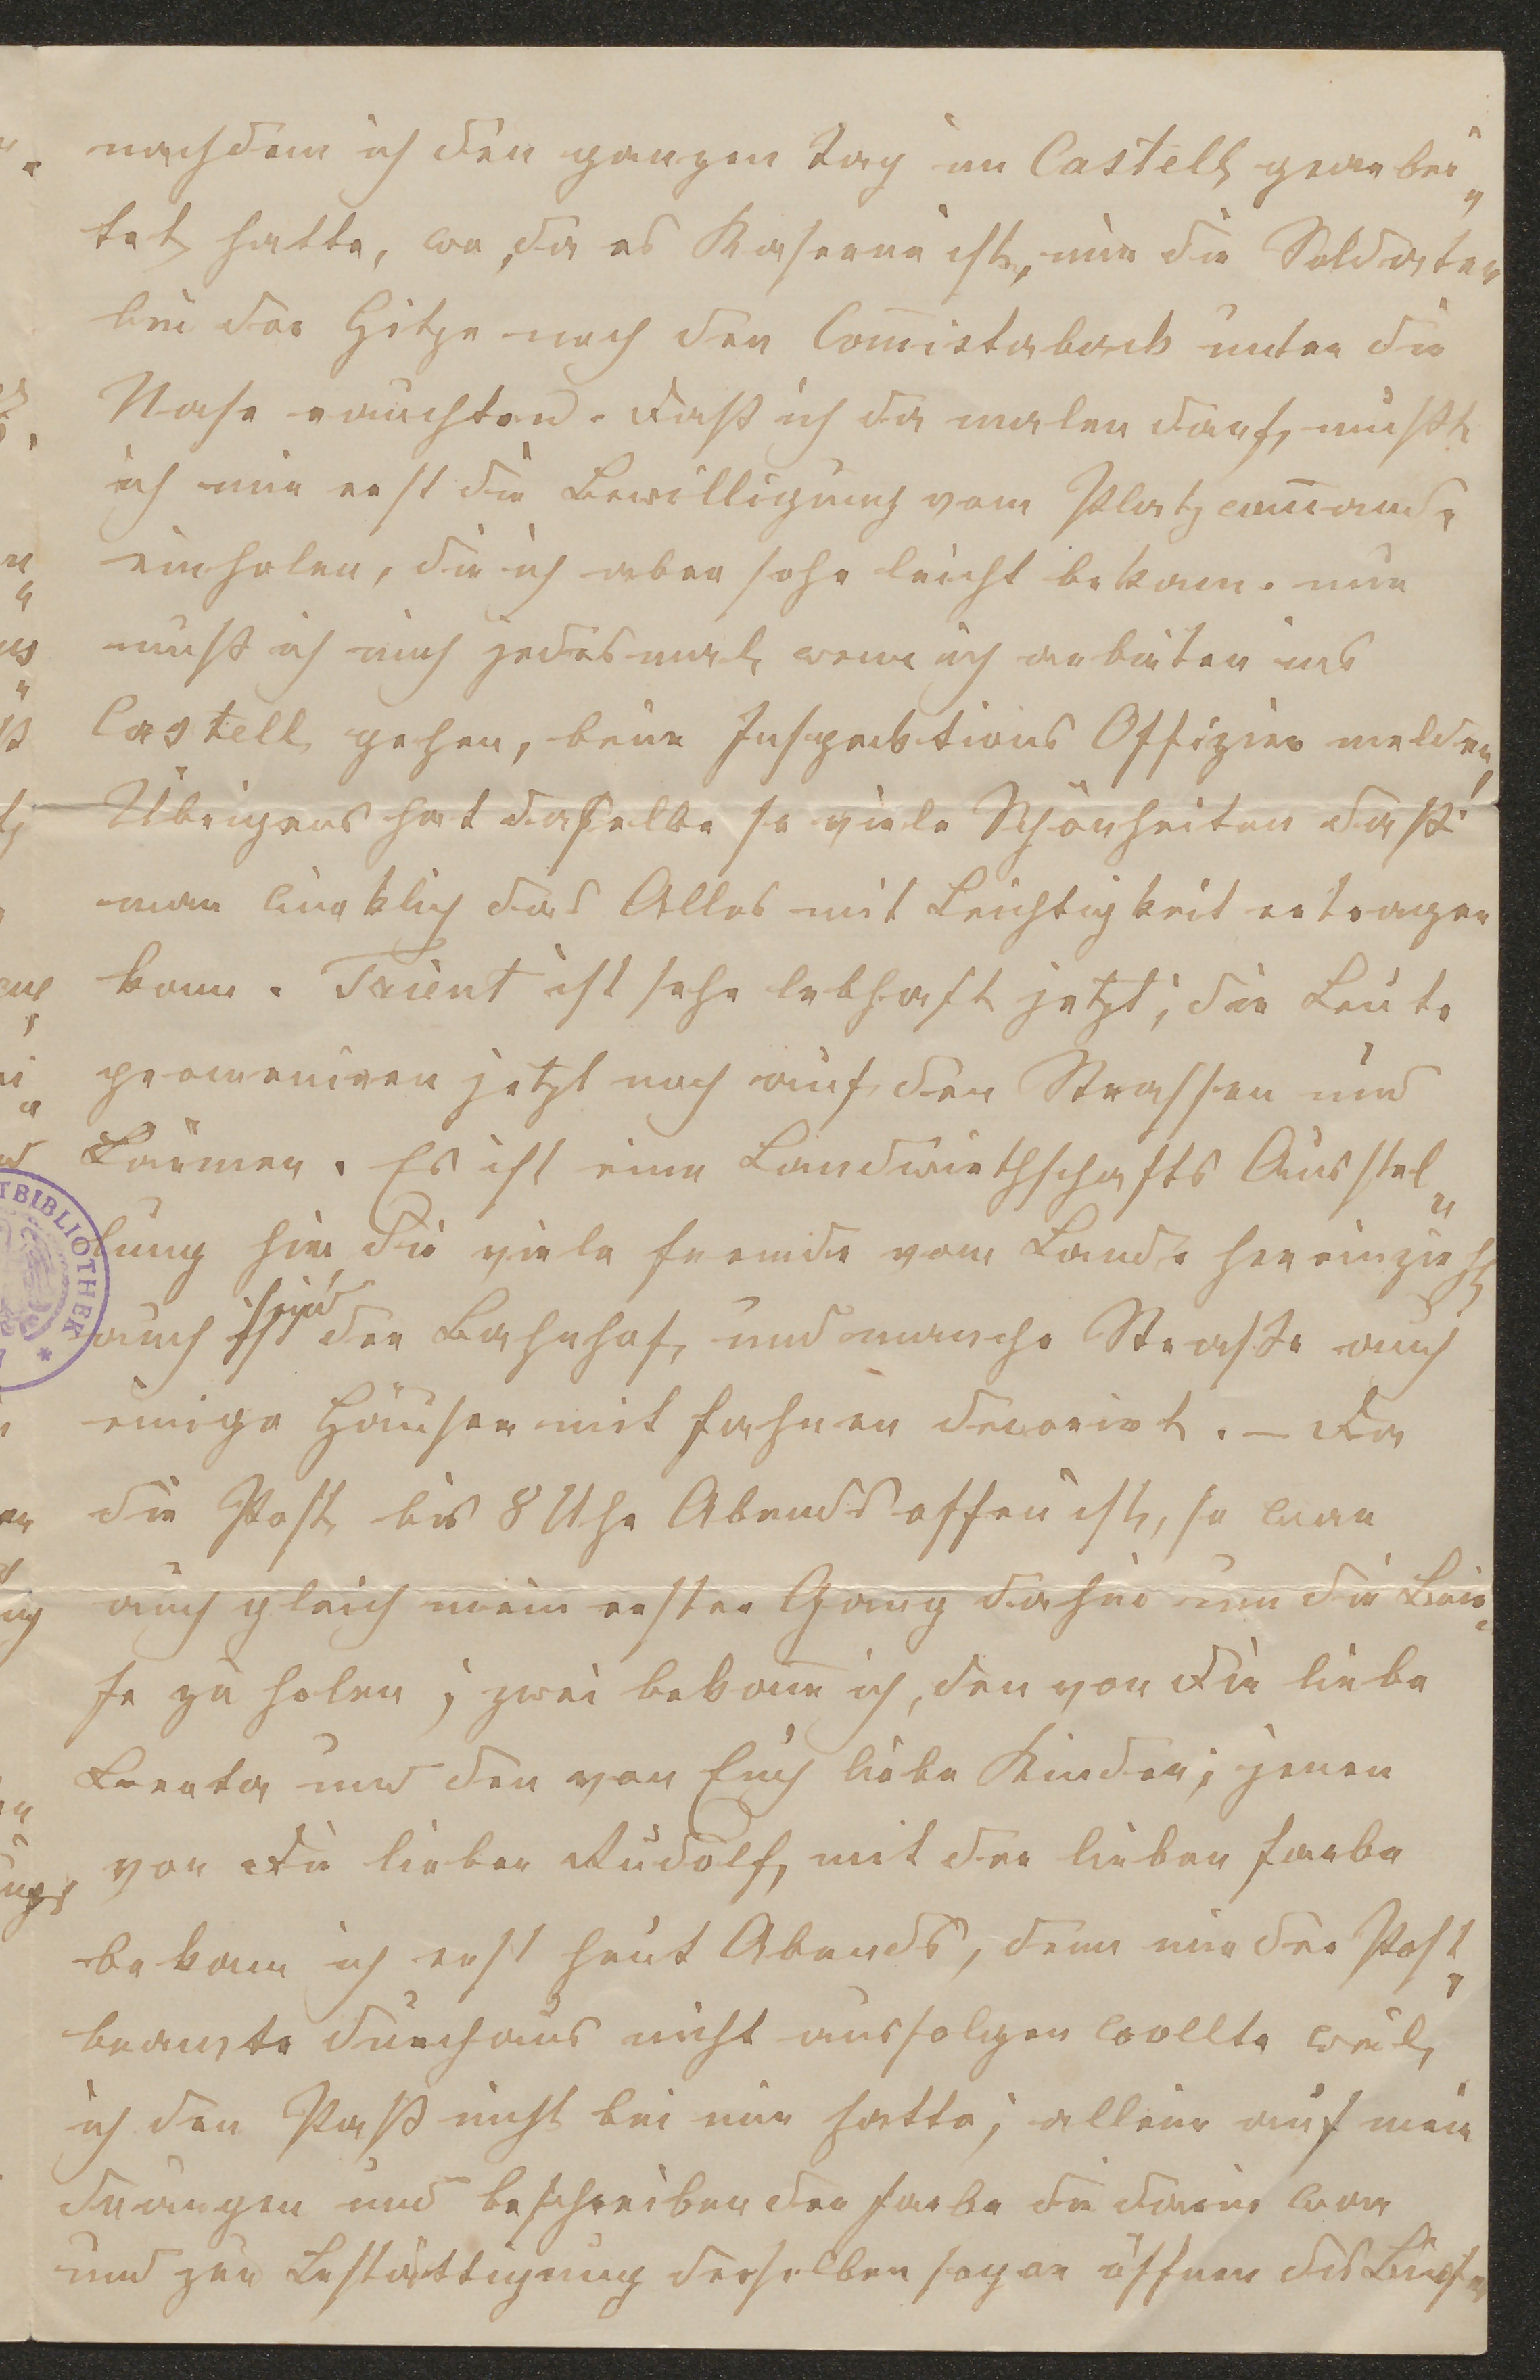 nachdem ich den ganzen Tag im Castell gearbei„
tet hatte, wo, da es Kaserne ist, mir die Soldaten
bei der Hitze noch den Com̅istaback unter die
Nase rauchten. Daß ich da malen darf, mußt
ich mir erst die Bewilligung vom Platzcom̅ando
einholen, die ich aber sehr leicht bekam. nur
muß ich mich jedesmal, wenn ich arbeiten ins
Castell gehen, beim Inspecktions Offizier melden,
Übrigens hat daselbe so viele Schönheiten daß
man wirklich das Alles mit Leichtigkeit ertragen
kann. Trient ist sehr lebhaft jetzt; die Leute
promeniren jetzt noch auf den Strassen und
Lärmen. Es ist eine Landwirthschafts Ausstel„
lung hier die viele fremde vom Lande hereinzieht,
auch ist sind der Bahnhof, und manche Straße auch
einige Häuser mit fahnen decorirt. – Da
die Post bis 8 Uhr Abends offen ist, so war
auch gleich mein erster Gang dahin um die Brie„
fe zu holen; zwei bekom̅ ich, den von Dir liebe
Berta und den von Euch liebe Kinder; jenen
von Dir lieber Rudolf, mit der lieben farbe
bekam ich erst heut Abends, denn mir der Post„
beamte durchaus nicht ausfolgen wollte weil,
ich den Paß nicht bei mir hatte; allein auf mein
drängen und beschreiben der farbe die darin war
und zur Bestättigung derselben sogar öffnen des Briefes
TBIBLIOTHEK *